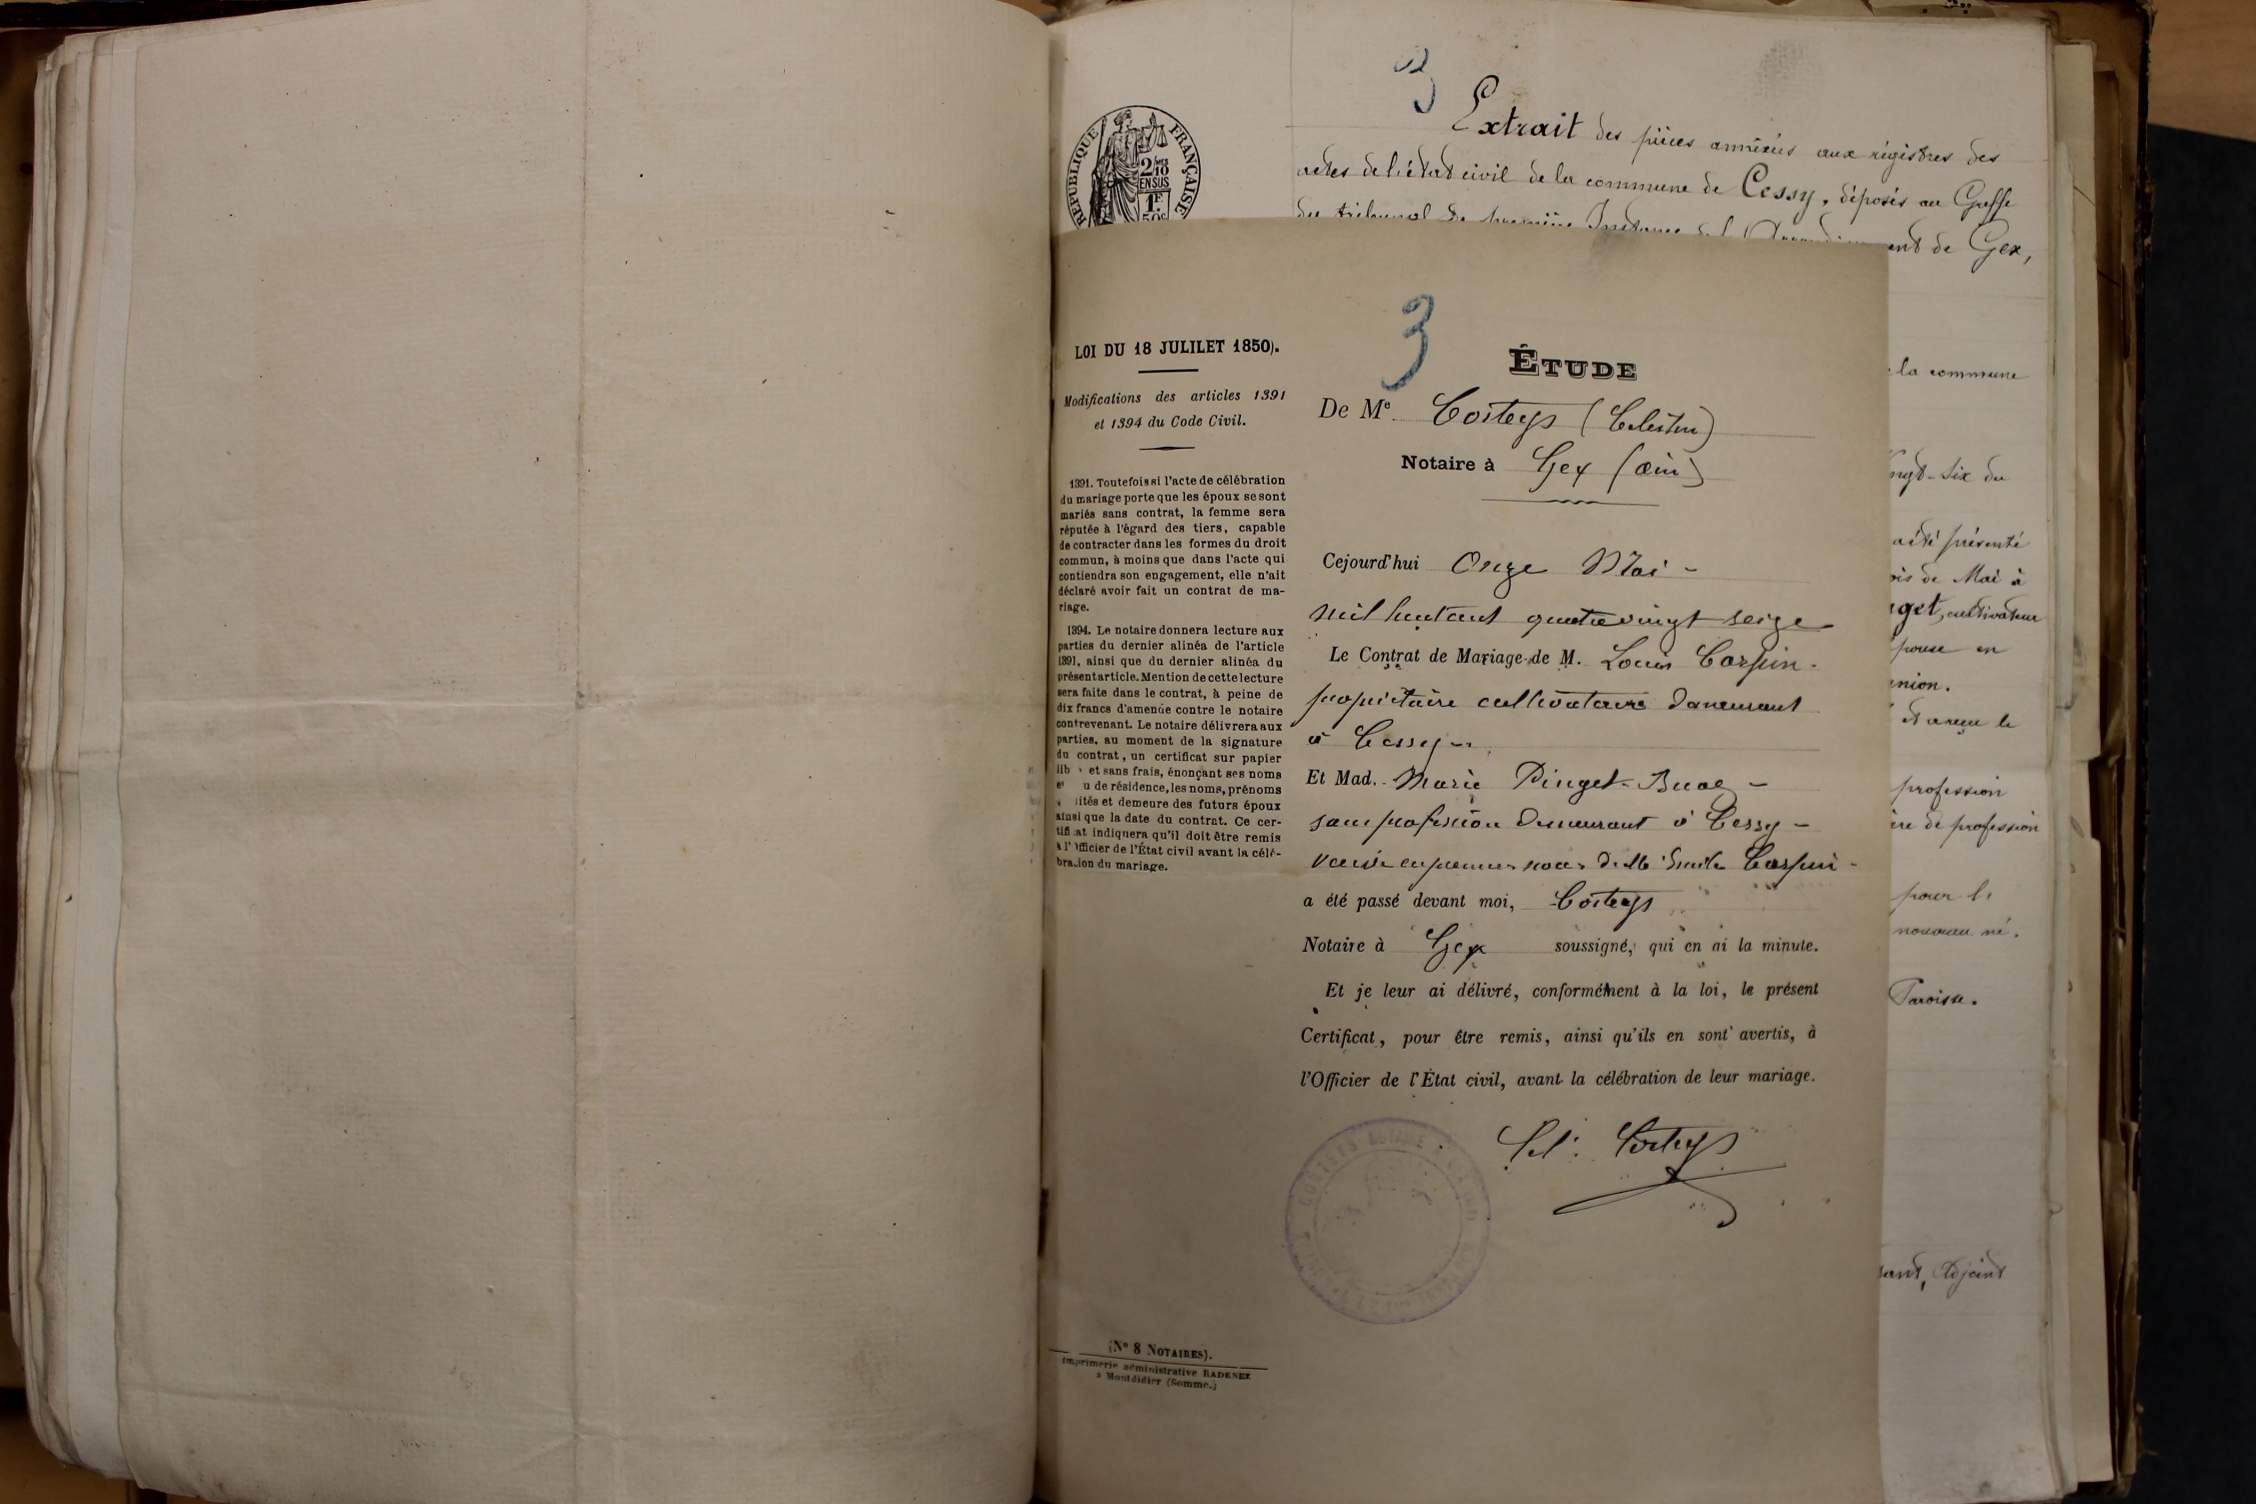 3
Extrait des pièces annexées aux régistres des
actes de l'état civil de la commune de Cessy, déposés au Greffe
du tribunal de première Instance de l'Arrondissement de Gex,
RÉPUBLIQUE FRANÇAISE
2/10
EN SUS
1F
50c
la commune
vingt-six du
a été présenté
mois de Mai à
cultivateur
épouse en
union.
et a reçu le
profession
de profession
pour le
nouveau né.
Paroisse.
Adjoint
LOI DU 18 JULILET 1850).
Modifications des articles 1391
et 1394 du Code Civil.
1391. Toutefois si l'acte de célébration
du mariage porte que les époux se sont
mariés sans contrat, la femme sera
réputée à l'égard des tiers, capable
de contracter dans les formes du droit
commun, à moins que dans l'acte qui
contiendra son engagement, elle n'ait
déclaré avoir fait un contrat de ma-
riage.
1394. Le notaire donnera lecture aux
parties du dernier alinéa de l'article
1391, ainsi que du dernier alinéa du
présent article. Mention de cette lecture
sera faite dans le contrat, à peine de
dix francs d'amende contre le notaire
contrevenant. Le notaire délivrera aux
parties, au moment de la signature
du contrat, un certificat sur papier
lib et sans frais, énonçant ses noms
e u de résidence, les noms, prénoms
ités et demeure des futurs époux
ainsi que la date du contrat. Ce cer-
tificat indiquera qu'il doit être remis
à l'Officier de l'État civil avant la célé-
bration du mariage.
(N° 8 NOTAIRES).
Imprimerie administrative RADENEZ
à Montdidier (Somme.)
3
ÉTUDE
De Me Costeys (Célestin)
Notaire à Gex (Ain)
Cejourd'hui Onze Mai -
mil huit cent quatre vingt seize
Le Contrat de Mariage de M. Louis Carpin -
propriétaire cultivateur demeurant
à Cessy -
Et Mad. Marie Pinget-Buaz -
sans profession demeurant à Cessy -
veuve en premières noces de M. Emile Carpin -
a été passé devant moi, Costeys
Notaire à Gex soussigné, qui en ai la minute.
Et je leur ai délivré, conformément à la loi, le présent
Certificat, pour être remis, ainsi qu'ils en sont avertis, à
l'Officier de l'État civil, avant la célébration de leur mariage.
Cel. Costeys